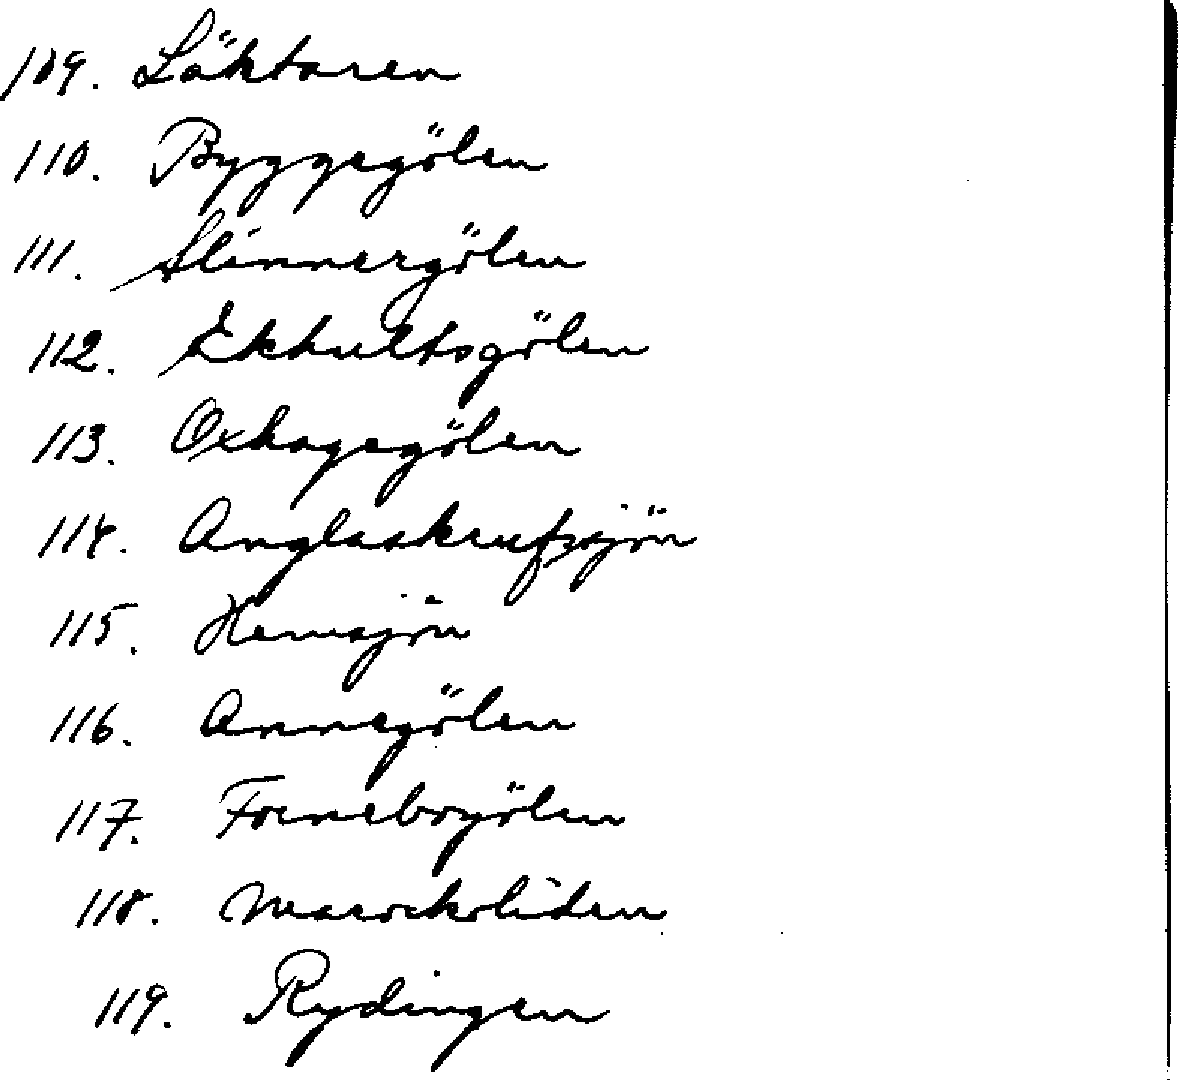 109. Läktaren
110. Byggegölen
111. Slinnergölen
112. Ekhultsgölen
113. Oxhagegölen
114. Anglaskrufssjön
115. Hemsjön
116. Annegölen
117. Fornebogölen
118. Marockoliden
119. Rydingen